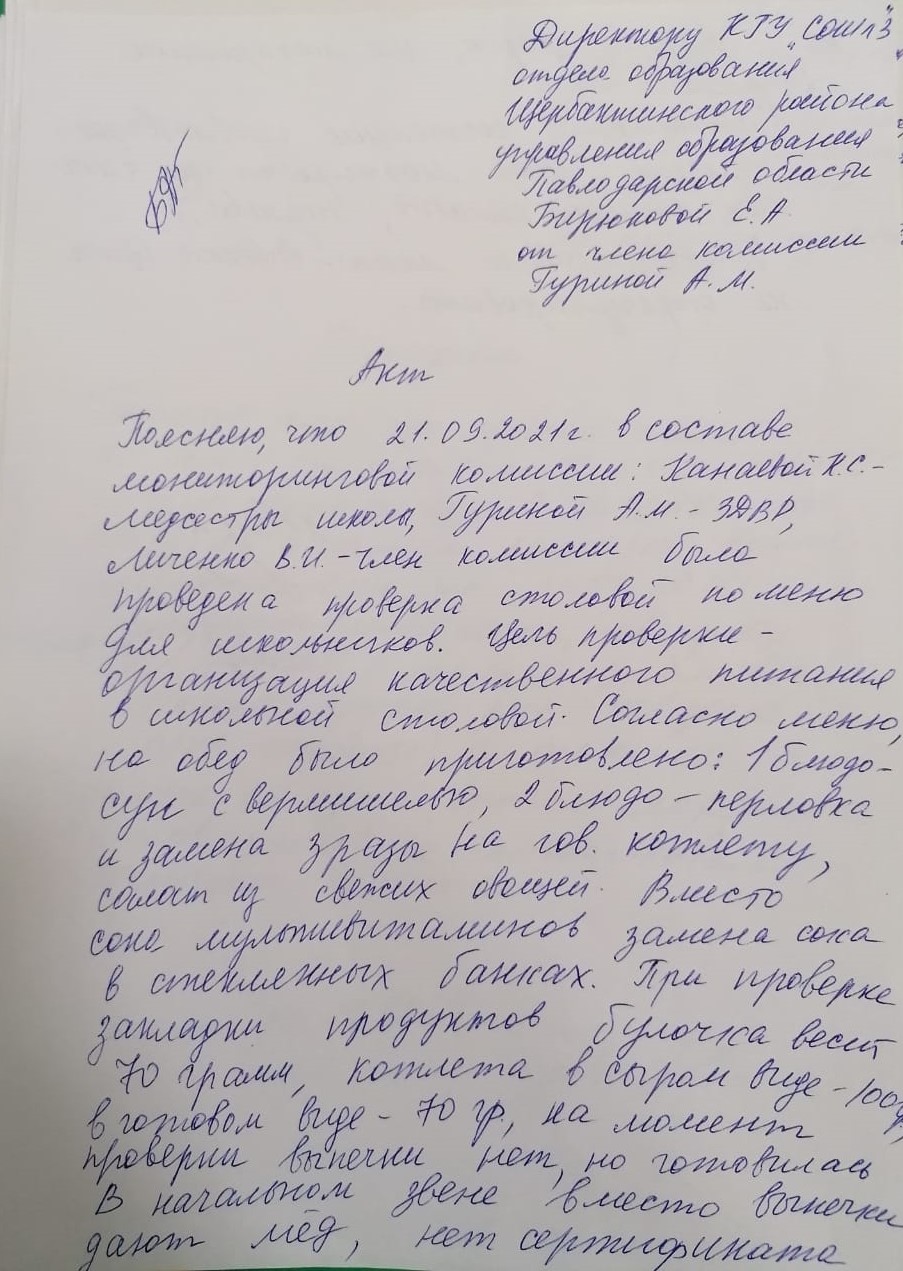 Директору КГУ "СОШ №3
отдела образования
Щербактинского района
управления образования
Павлодарской области
Бирюковой Е.А.
от члена комиссии
Гуриной А.М.
Акт
Поясняю, что 21.09.2021г. в составе
мониторинговой комиссии: Канаевой К.С.-
медсестры школы, Гуриной А.М.- ЗДВР,
Личенко В.И.-член комиссии была
проведена проверка столовой по меню
для школьников. Цель проверки-
организация качественного питания
в школьной столовой. Согласно меню,
на обед было приготовлено: 1 блюдо-
суп с вермишелью, 2 блюдо - перловка
и замена зразы на гов. котлету,
салат из свежих овощей. Вместо
сока мультивитаминов замена сока
в стеклянных банках. При проверке
закладки продуктов булочка весит
70 грамм, котлета в сыром виде - 100гр,
в готовом виде - 70 гр., на момент
проверки выпечки нет, но готовилась
В начальном звене вместо выпечки
дают мёд, нет сертификата